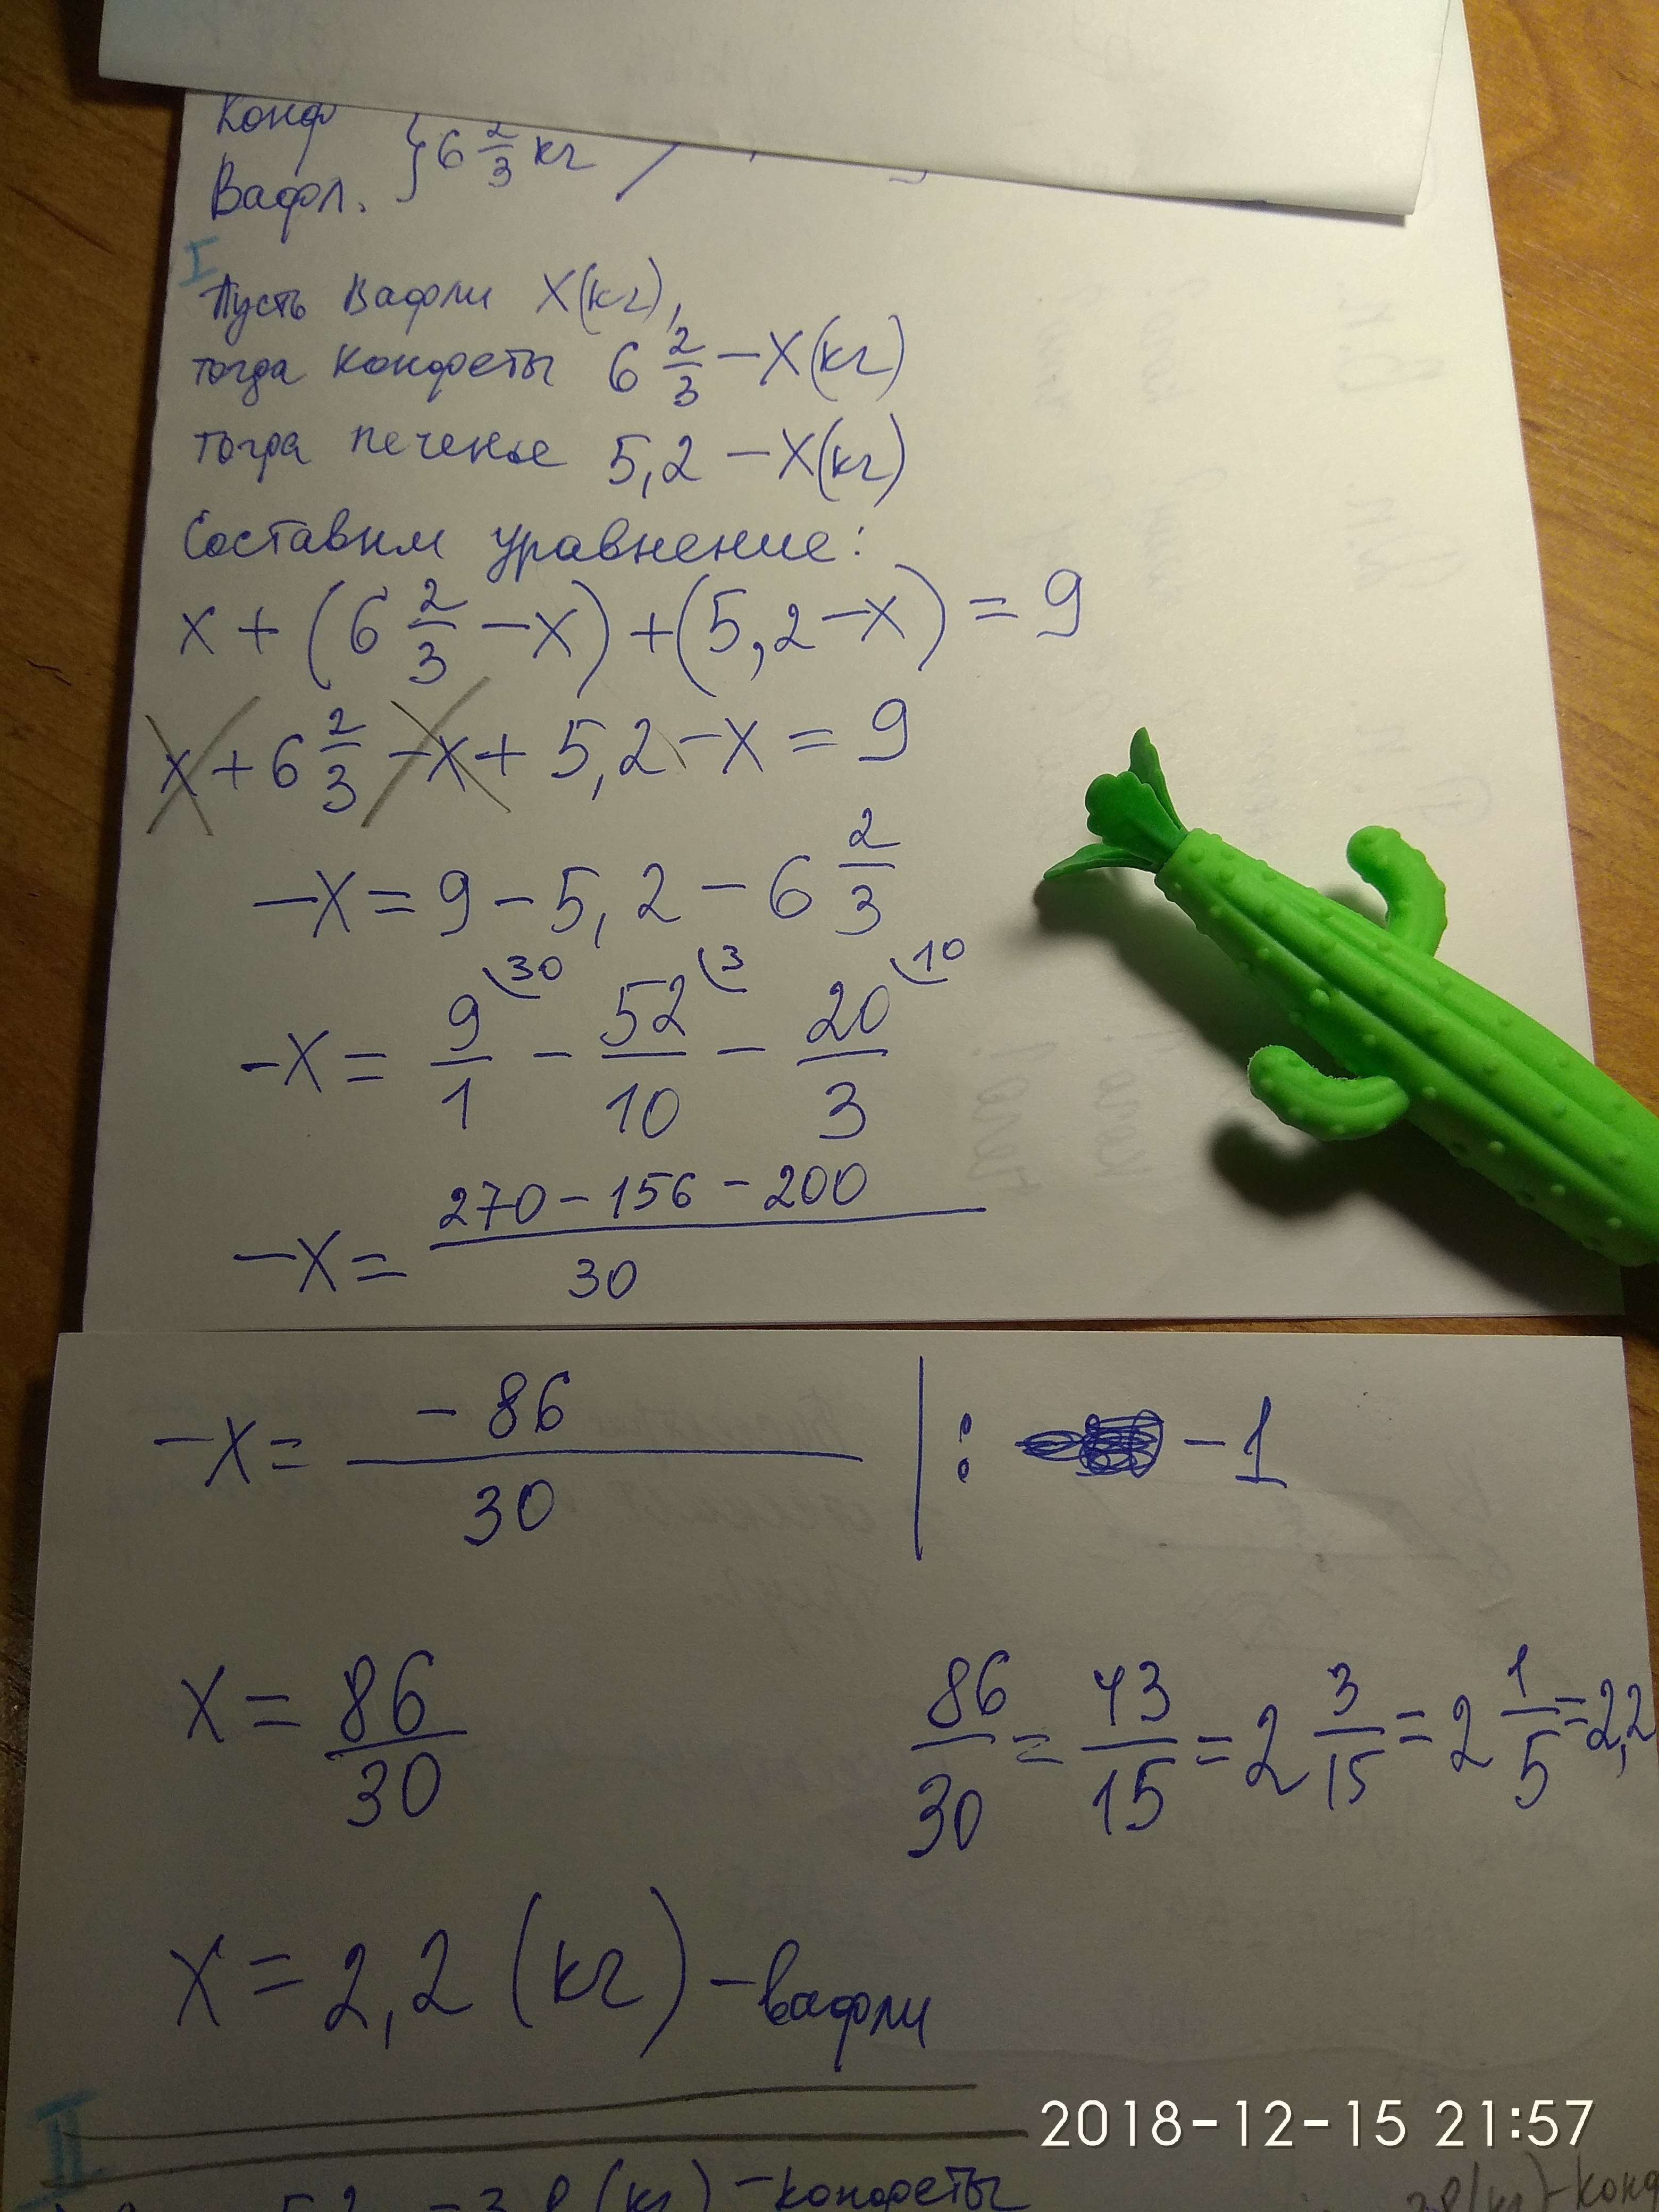 Конф
Вафл. } 6 2/3 кг
I
Пусть Вафли X(кг),
тогда конфеты 6 2/3 - X(кг)
тогда печенье 5,2 - X(кг)
Составим уравнение:
x + (6 2/3 - x) + (5,2 - x) = 9
x + 6 2/3 - x + 5,2 - x = 9
-X = 9 - 5,2 - 6 2/3
-X = 9/1 (30 - 52/10 (3 - 20/3 (10
-X = (270 - 156 - 200)/30
-X = -86/30 | : -1
X = 86/30
86/30 = 43/15 = 2 3/15 = 2 1/5 = 2,2
X = 2,2 (кг) - вафли
2018-12-15 21:57
II
(кг) - конфеты